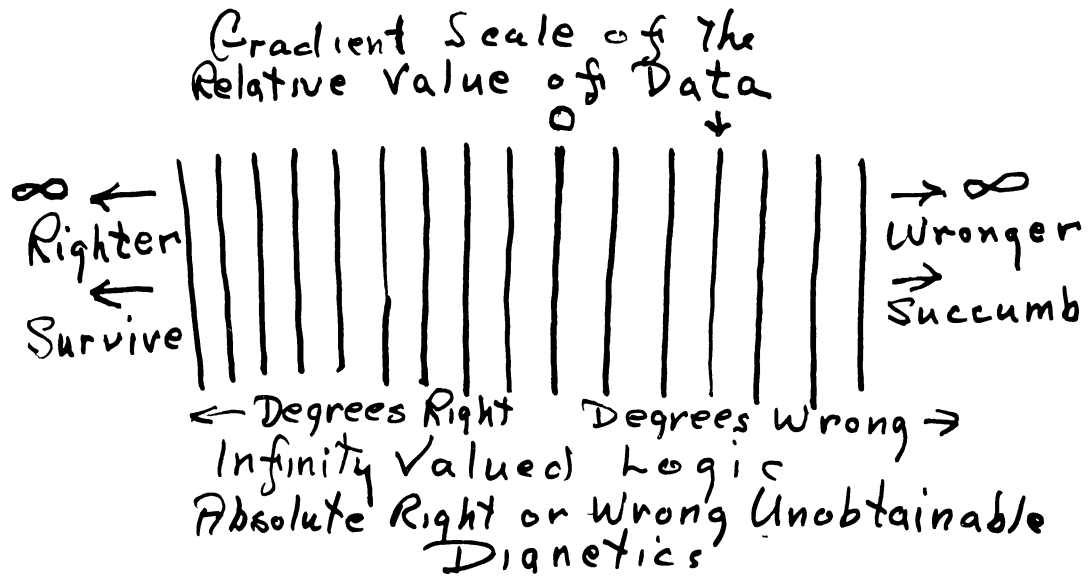 Gradient Scale of The
Relative Value of Data
O ↓
∞ ← → ∞
Righter Wronger
← →
Survive Succumb
← Degrees Right Degrees Wrong →
Infinity Valued Logic
Absolute Right or Wrong Unobtainable
Dianetics